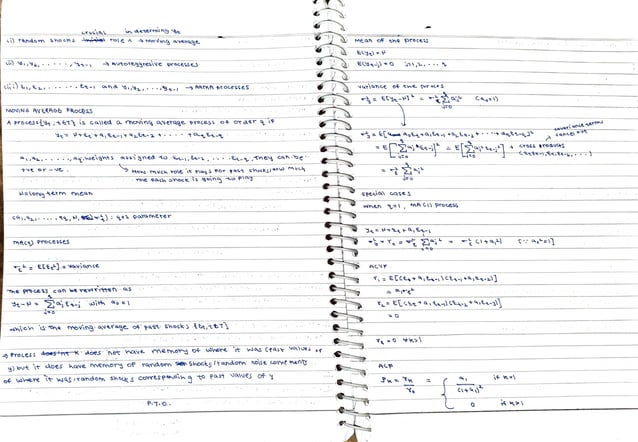 crucial in determining yt
(i) random shocks role : → moving average
(ii) y1, y2, ......, yt-1 → autoregressive processes
(iii) ε1, ε2, ...... εt-1 and y1, y2, ...... yt-1 → ARMA processes
MOVING AVERAGE PROCESS
A process {yt, t∈T} is called a moving average process of order q if
yt = μ + εt + a1 εt-1 + a2 εt-2 + ...... + aq εt-q
a1, a2, ......, aq: weights assigned to εt-1, εt-2, ...... εt-q, they can be
+ve or -ve.
How much role it plays for past shocks/how much
role each shock is going to play
μ = long term mean
(a1, a2, ......, aq, μ, σε²) : q+2 parameter
MA(q) processes
σε² = E[εt²] = variance
The process can be rewritten as
yt - μ = Σ(j=0 to q) aj εt-j with a0 = 1
which is the moving average of past shocks {εt, t∈T}
→ Process does not have memory of where it was (past values of
y) but it does have memory of random shocks/random noise components
of where it was: random shocks corresponding to past values of y
P.T.O.
Mean of the process
E(yt) = μ
variance of the process
σy² = E[yt-μ]² = σε² Σ(j=0 to q) aj² (a0=1)
covariance terms
σy² = E[a0 εt + a1 εt-1 + a2 εt-2 + ...... + aq εt-q]²
= E[Σ(j=0 to q) aj εt-j]² = E[Σ aj² εt-j²] + cross products
(εt εt-1, εt εt-2, ...)
= σε² Σ(j=0 to q) aj²
special cases
when q=1, MA(1) process
yt = μ + εt + a1 εt-1
σy² = γ0 = σε² Σ aj² = σε² (1+a1²) [∵ a0²=1]
ACVF
γ1 = E[(εt + a1 εt-1)(εt-1 + a1 εt-2)]
= a1 σε²
γ2 = E[(εt + a1 εt-1)(εt-2 + a1 εt-3)]
= 0
γk = 0 ∀ k>1
ACF
ρk = γk/γ0 = { a1/(1+a1)² if k=1
0 if k>1